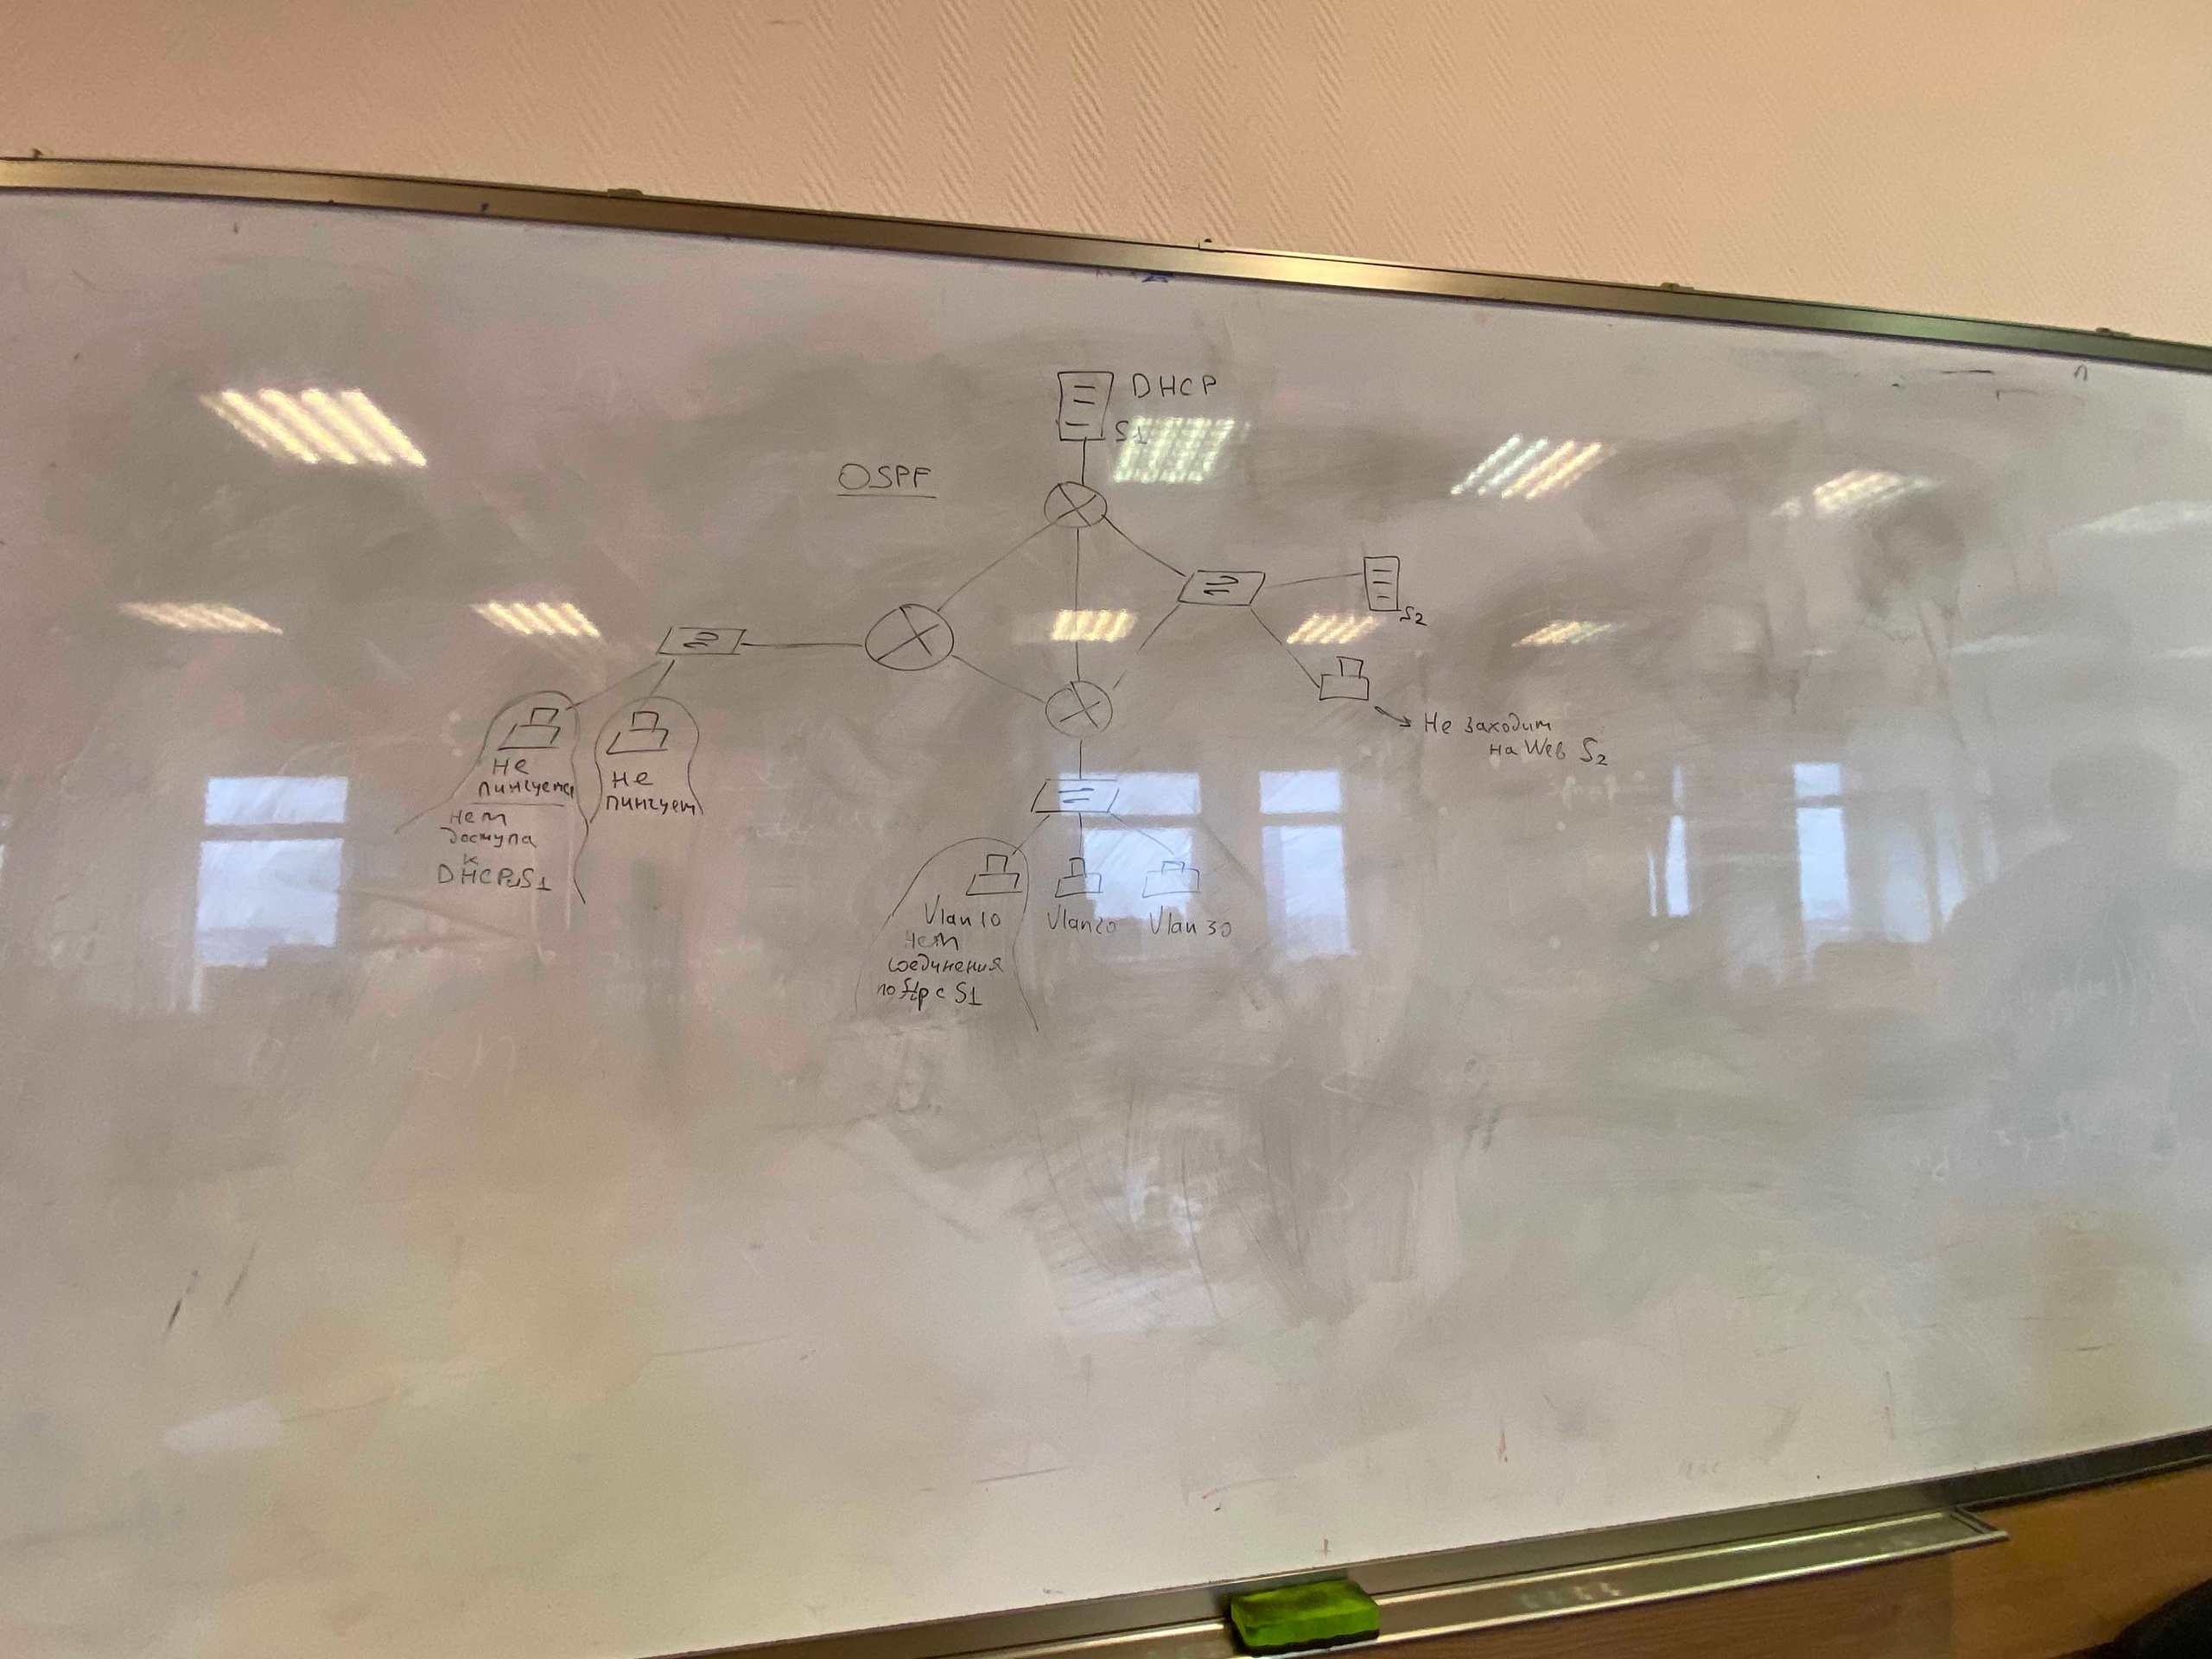 DHCP
S1
OSPF
S2
Не заходит
на Web S2
не
пингуется
нет
доступа
к
DHCP S1
не
пингует
Vlan 10
нет
соединения
по ftp с S1
Vlan20
Vlan 30